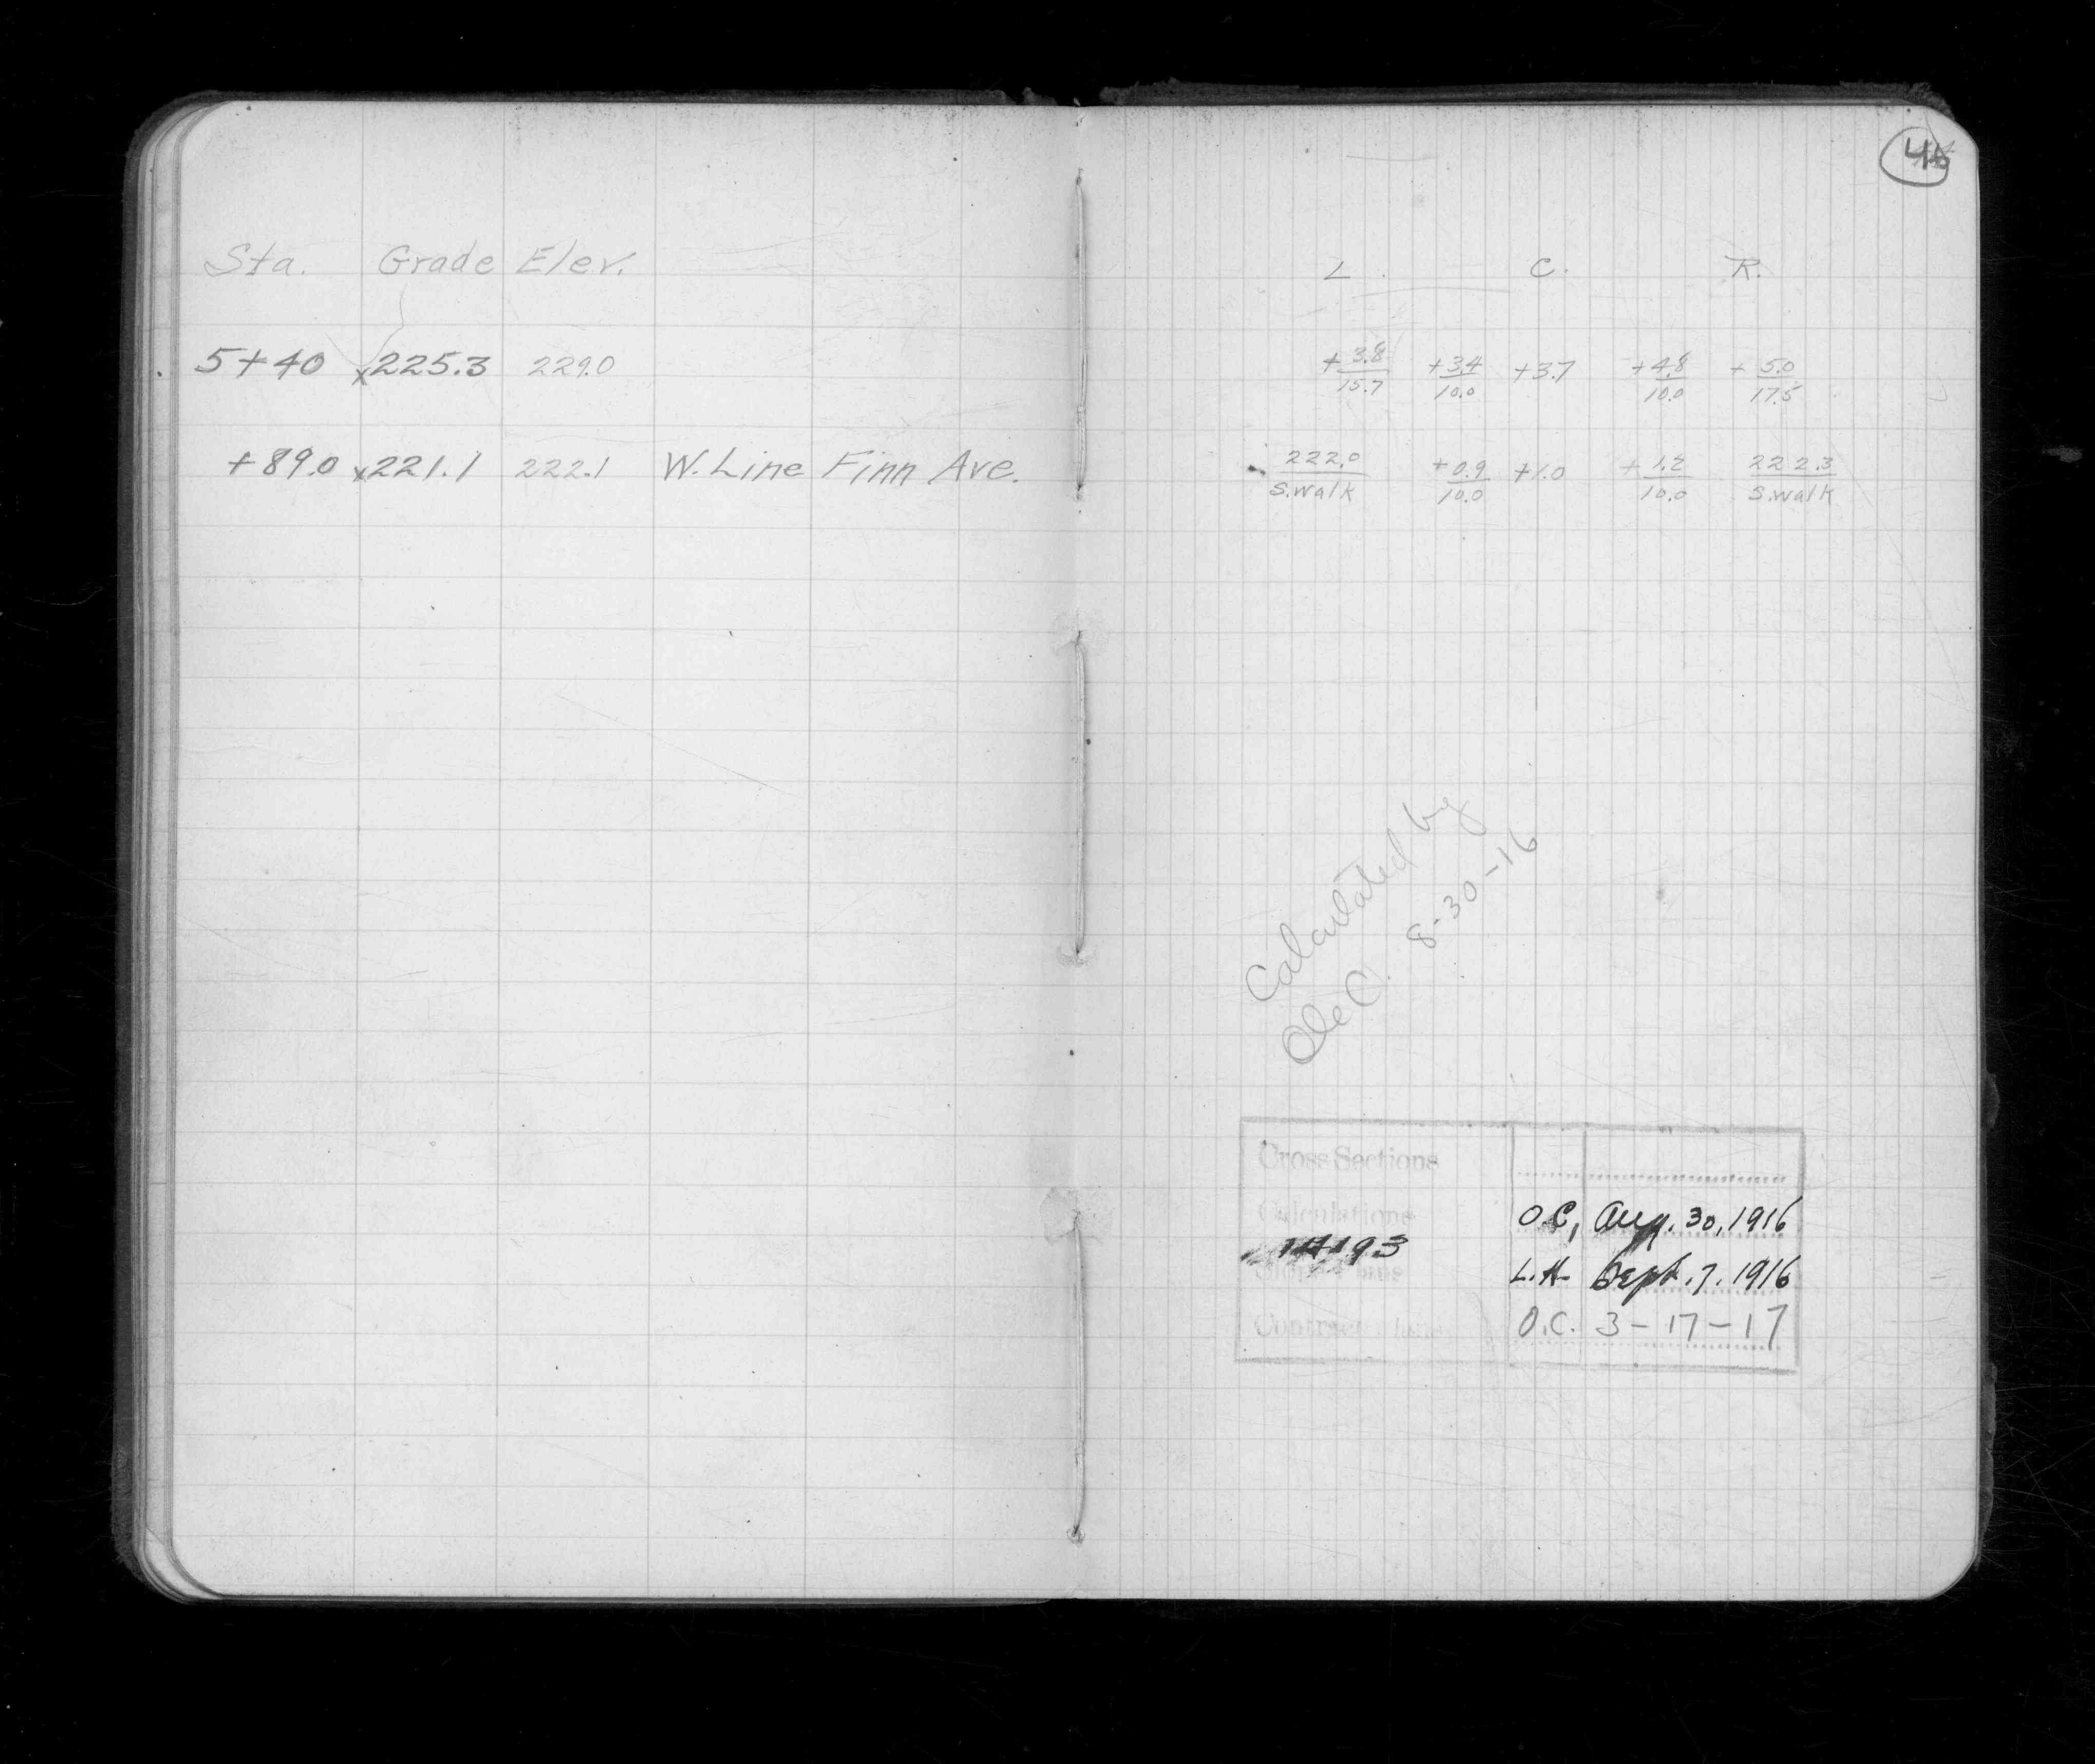 Sta. Grade Elev.
5+40 x225.3 229.0
+89.0 x221.1 222.1 W. Line Finn Ave.
L. C. R.
+3.8/15.7 +3.4/10.0 +3.7 +4.8/10.0 +5.0/17.5
222.0/S.walk +0.9/10.0 +1.0 +1.2/10.0 222.3/S.walk
Calculated by
Ole C. 8-30-16
Cross Sections
Calculations O.C, Aug. 30, 1916
L.H. Sept. 7. 1916
O.C. 3-17-17